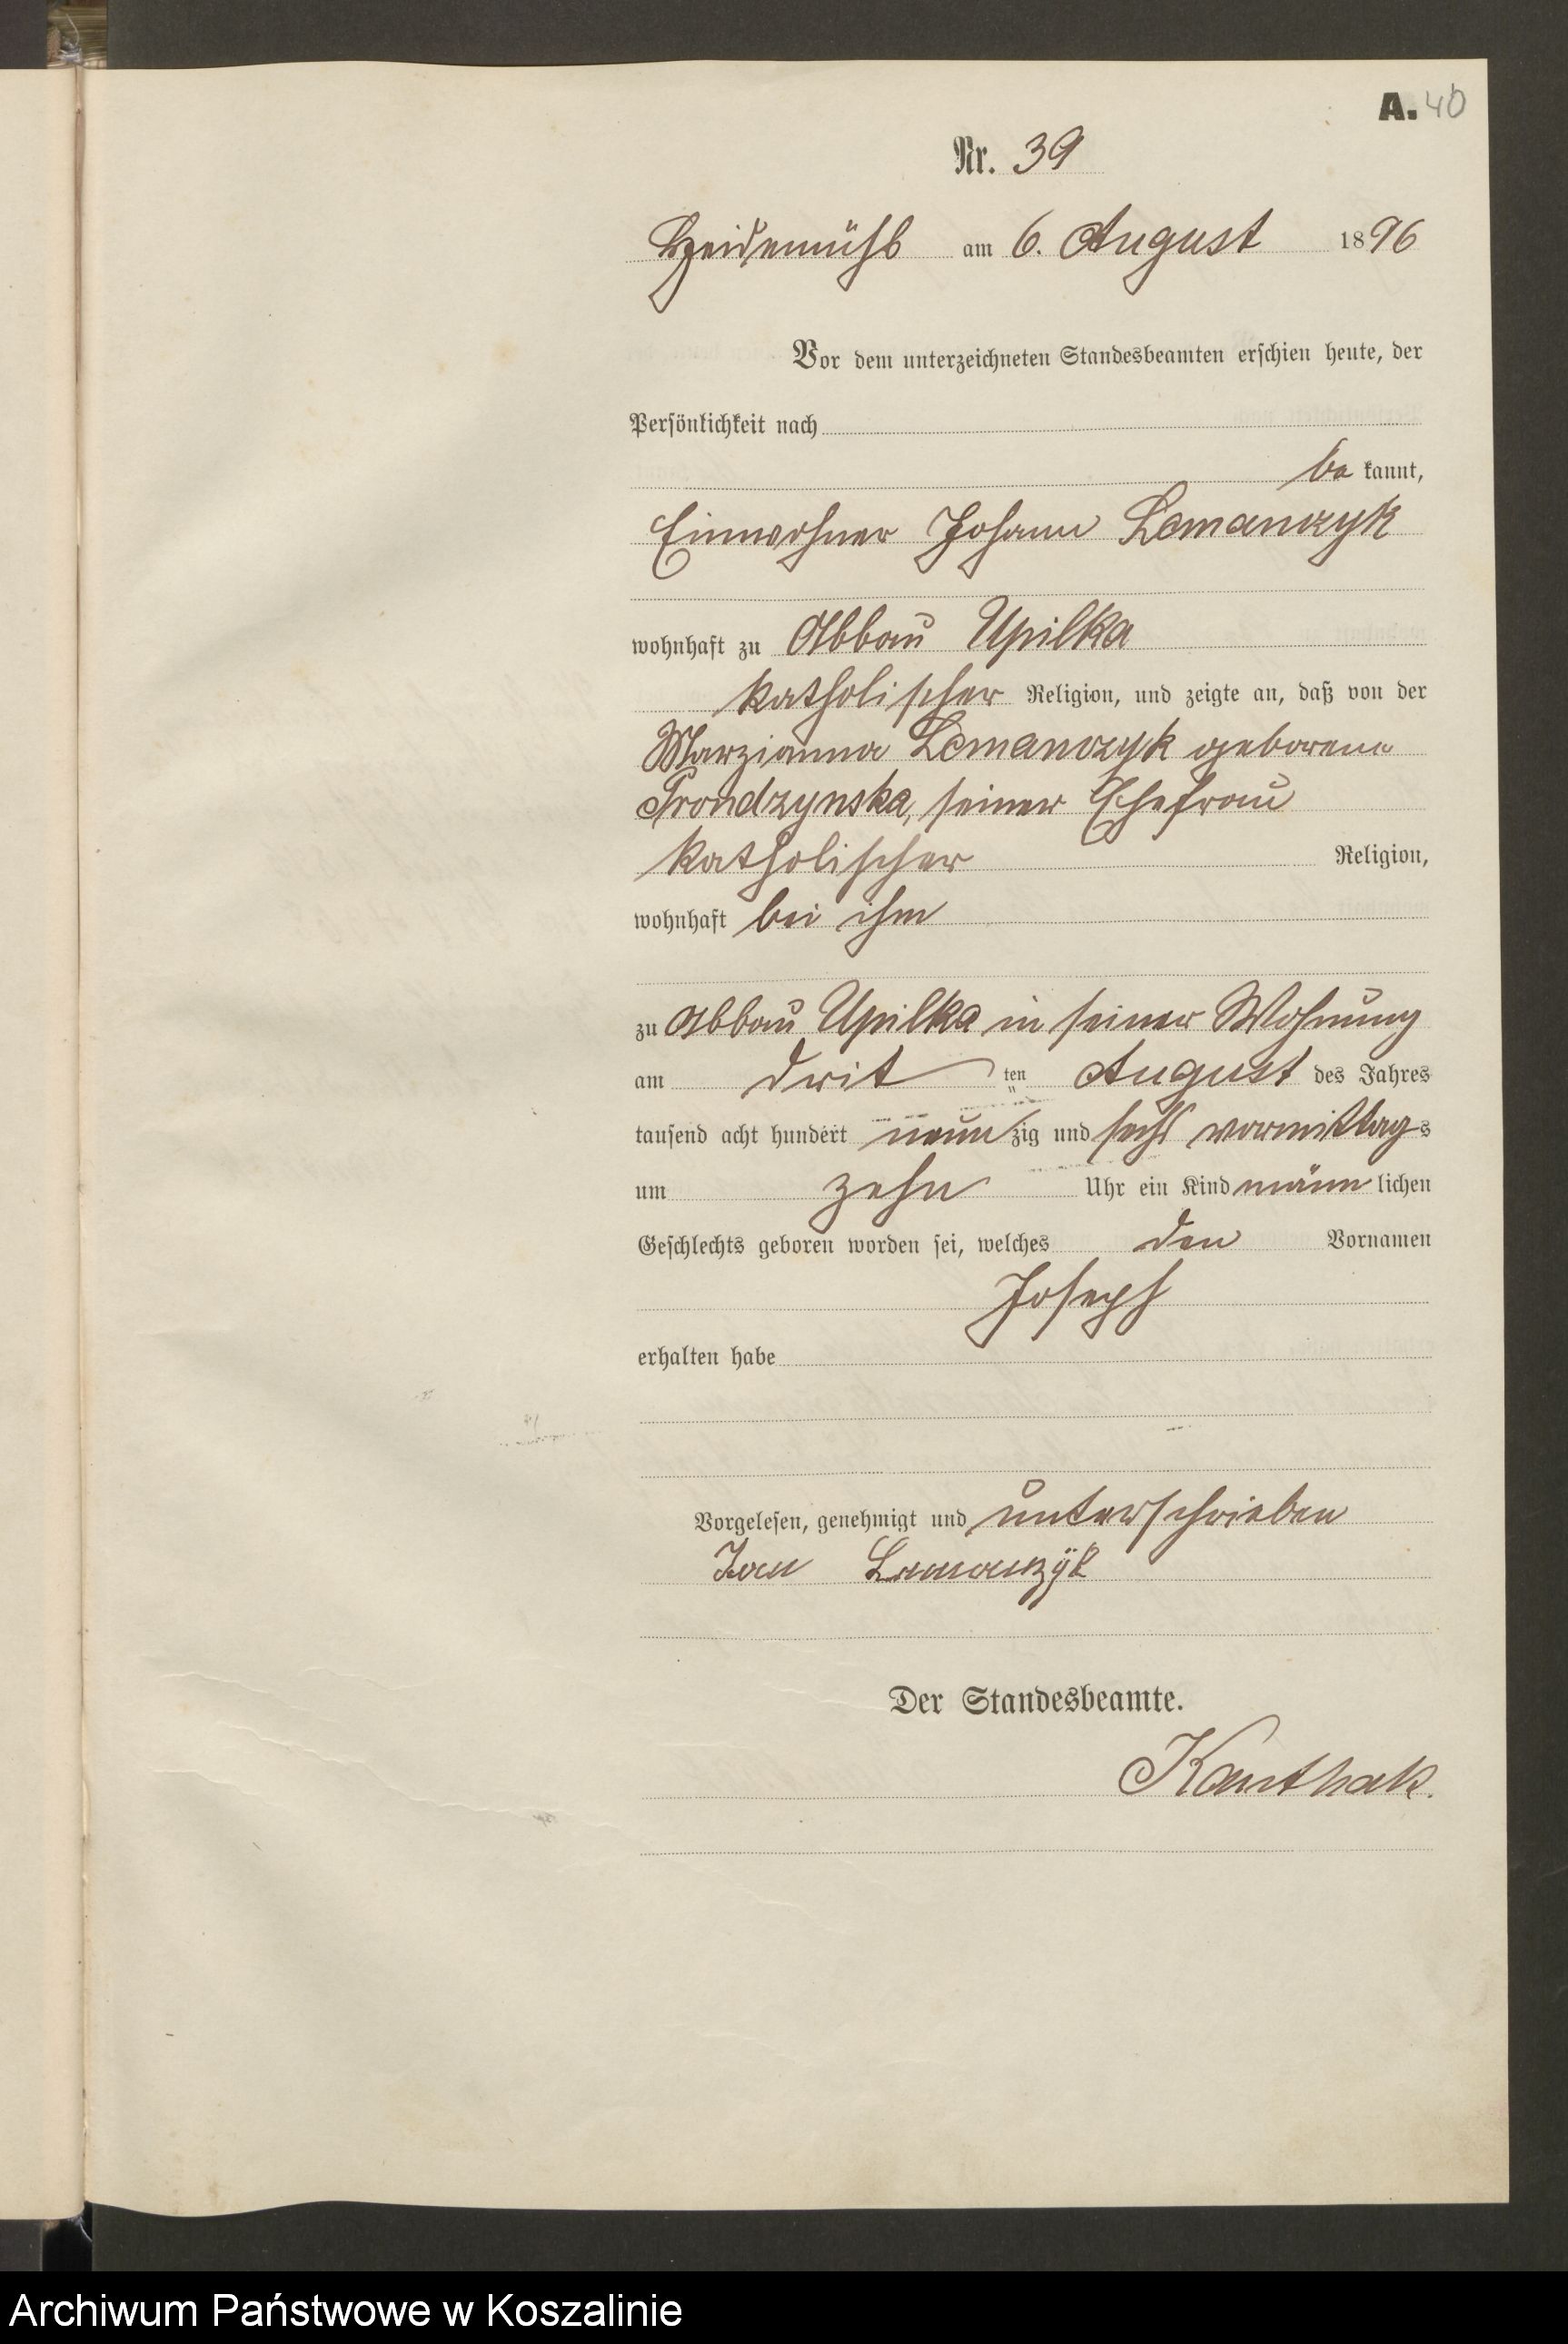 A. 40
Nr. 39
Heidemühl am 6. August 1896
Vor dem unterzeichneten Standesbeamten erschien heute, der
Persönlichkeit nach
be kannt,
Einwohner Johann Lemanczyk
wohnhaft zu Abbau Upilka
katholischer Religion, und zeigte an, daß von der
Marzianna Lemanczyk geborene
Prondzynska, seiner Ehefrau
katholischer Religion,
wohnhaft bei ihm
zu Abbau Upilka in seiner Wohnung
am drit ten August des Jahres
tausend acht hundert neun zig und sechs vormittags
um zehn Uhr ein Kind männ lichen
Geschlechts geboren worden sei, welches den Vornamen
Joseph
erhalten habe
Vorgelesen, genehmigt und unterschrieben
Jan Lemanczÿk
Der Standesbeamte.
Kanthak.
Archiwum Państwowe w Koszalinie